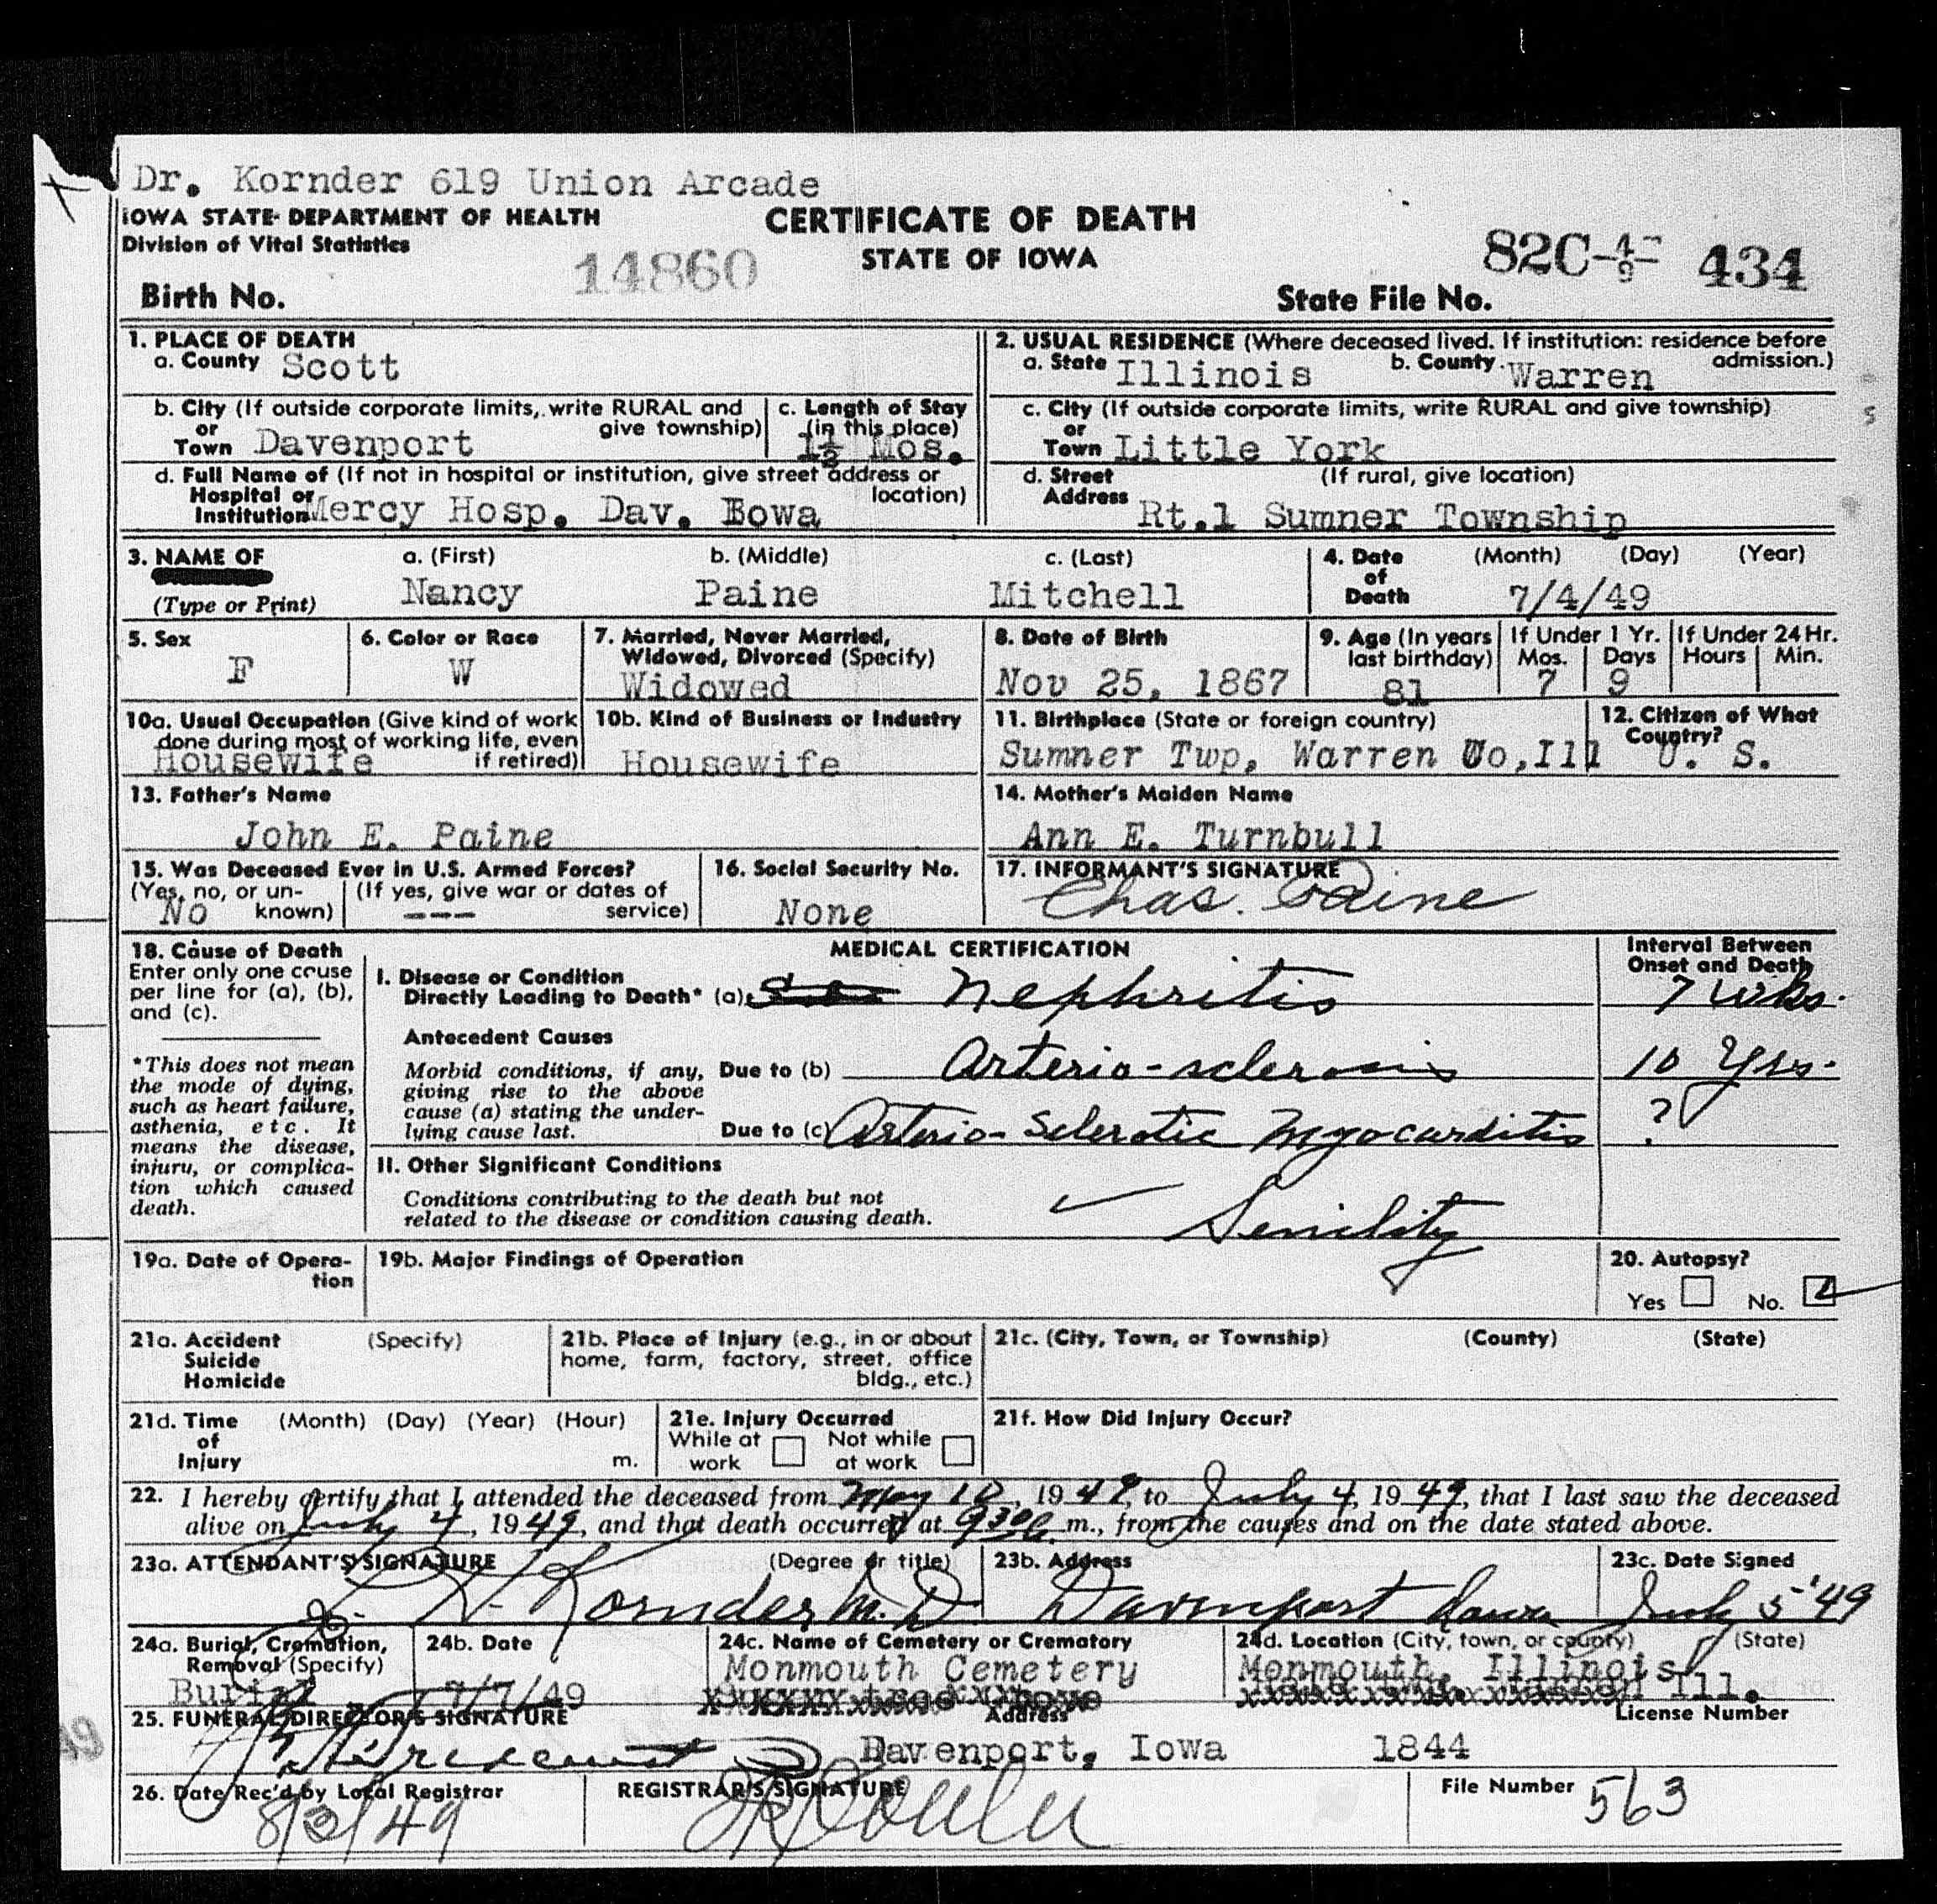 Dr. Kornder 619 Union Arcade
IOWA STATE DEPARTMENT OF HEALTH
Division of Vital Statistics
CERTIFICATE OF DEATH
STATE OF IOWA
14860
82C-4-9 434
Birth No.
State File No.
1. PLACE OF DEATH
a. County Scott
2. USUAL RESIDENCE (Where deceased lived. If institution: residence before admission.)
a. State Illinois b. County Warren
b. City (If outside corporate limits, write RURAL and give township)
or Town Davenport
c. Length of Stay (in this place)
1½ Mos.
c. City (If outside corporate limits, write RURAL and give township)
or Town Little York
d. Full Name of (If not in hospital or institution, give street address or location)
Hospital or Institution Mercy Hosp. Dav. Iowa
d. Street Address (If rural, give location)
Rt.1 Sumner Township
3. NAME OF
(Type or Print)
a. (First) b. (Middle) c. (Last)
Nancy Paine Mitchell
4. Date of Death (Month) (Day) (Year)
7/4/49
5. Sex
F
6. Color or Race
W
7. Married, Never Married, Widowed, Divorced (Specify)
Widowed
8. Date of Birth
Nov 25, 1867
9. Age (In years last birthday)
81
If Under 1 Yr. Mos. Days
7 9
If Under 24 Hr. Hours Min.
10a. Usual Occupation (Give kind of work done during most of working life, even if retired)
Housewife
10b. Kind of Business or Industry
Housewife
11. Birthplace (State or foreign country)
Sumner Twp, Warren Co,Ill
12. Citizen of What Country?
U. S.
13. Father's Name
John E. Paine
14. Mother's Maiden Name
Ann E. Turnbull
15. Was Deceased Ever in U.S. Armed Forces?
(Yes, no, or unknown) (If yes, give war or dates of service)
No ---
16. Social Security No.
None
17. INFORMANT'S SIGNATURE
Chas. Paine
18. Cause of Death
Enter only one cause per line for (a), (b), and (c).
*This does not mean the mode of dying, such as heart failure, asthenia, etc. It means the disease, injury, or complication which caused death.
MEDICAL CERTIFICATION
Interval Between Onset and Death
I. Disease or Condition
Directly Leading to Death* (a) Nephritis 7 wks.
Antecedent Causes
Morbid conditions, if any, giving rise to the above cause (a) stating the underlying cause last.
Due to (b) Arterio-sclerosis 10 Yrs.
Due to (c) Arterio-Sclerotic Myocarditis ?
II. Other Significant Conditions
Conditions contributing to the death but not related to the disease or condition causing death.
Senility
19a. Date of Operation
19b. Major Findings of Operation
20. Autopsy?
Yes No.
21a. Accident Suicide Homicide (Specify)
21b. Place of Injury (e.g., in or about home, farm, factory, street, office bldg., etc.)
21c. (City, Town, or Township) (County) (State)
21d. Time of Injury (Month) (Day) (Year) (Hour) m.
21e. Injury Occurred
While at work Not while at work
21f. How Did Injury Occur?
22. I hereby certify that I attended the deceased from May 18, 1949, to July 4, 1949, that I last saw the deceased
alive on July 4, 1949, and that death occurred at 930 a m., from the causes and on the date stated above.
23a. ATTENDANT'S SIGNATURE (Degree or title)
L. H. Kornder M.D.
23b. Address
Davenport Iowa
23c. Date Signed
July 5 '49
24a. Burial, Cremation, Removal (Specify)
Burial
24b. Date
7/7/49
24c. Name of Cemetery or Crematory
Monmouth Cemetery
24d. Location (City, town, or county) (State)
Monmouth, Illinois
Ill.
25. FUNERAL DIRECTOR'S SIGNATURE
Address
Davenport, Iowa
License Number
1844
26. Date Rec'd by Local Registrar
8/3/49
REGISTRAR'S SIGNATURE
File Number 563